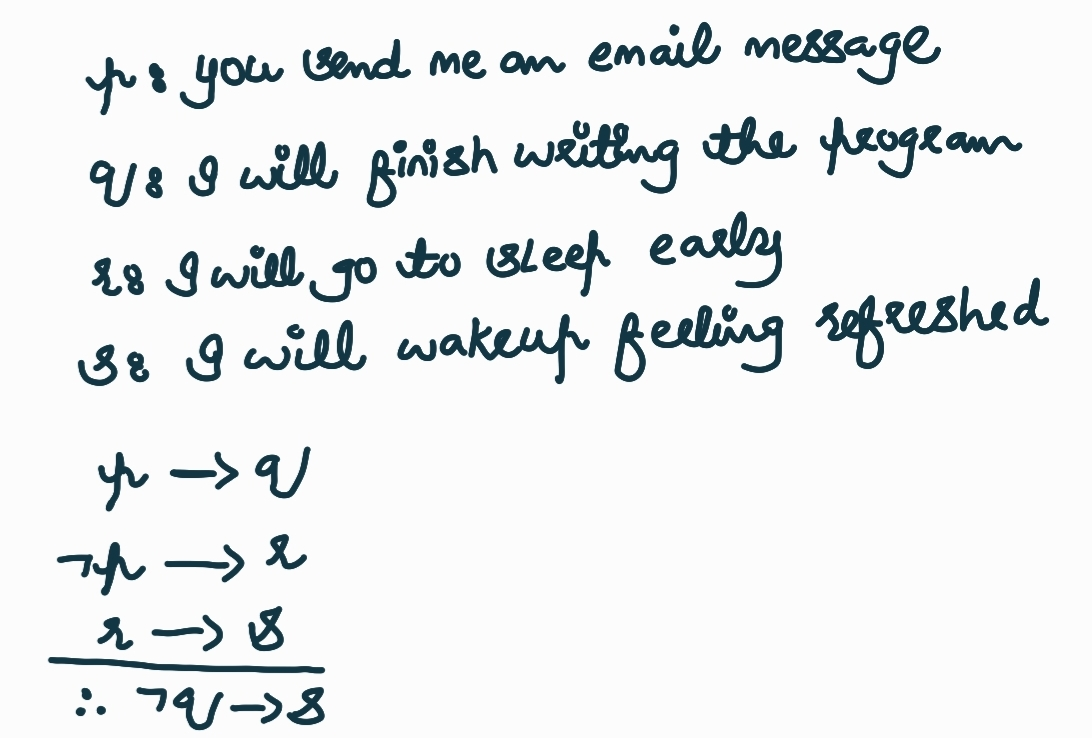 p: you send me an email message
q: I will finish writing the program
r: I will go to sleep early
s: I will wakeup feeling refreshed
p → q
¬p → r
r → s
∴ ¬q → s